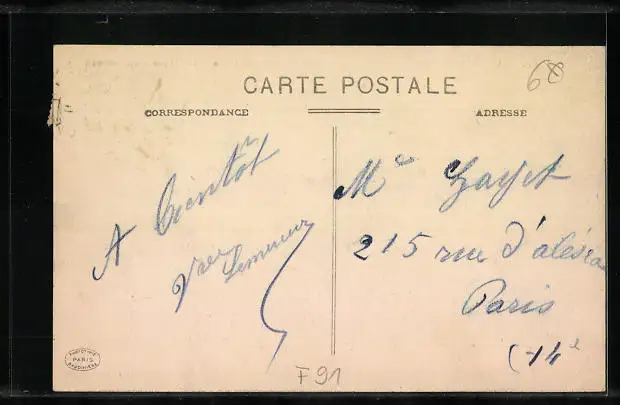 68
CARTE POSTALE
CORRESPONDANCE
ADRESSE
A bientôt
Me Gayet
215 rue d'alésia
Paris
(14e
PARIS
F91